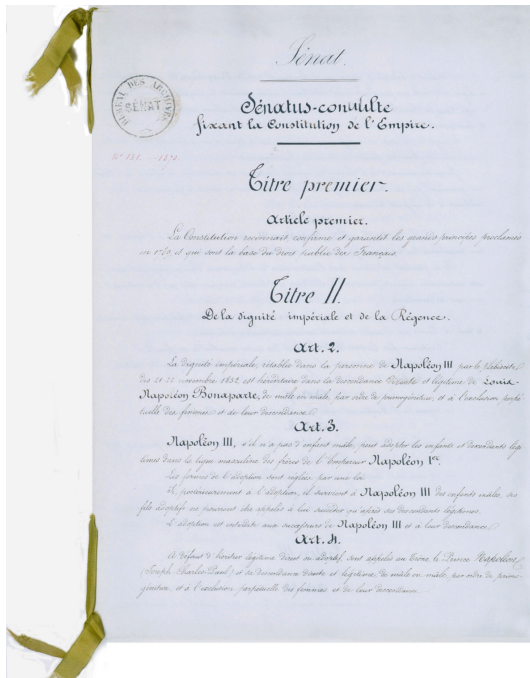 Sénat.
BUREAU DES ARCHIVES
SÉNAT
Sénatus-consulte
fixant la Constitution de l'Empire.
Titre premier.
Article premier.
La Constitution reconnait, confirme et garantit les grands principes proclamés
en 1789, et qui sont la base du droit public des Français.
Titre II.
De la dignité impériale et de la Régence.
Art. 2.
La dignité impériale, rétablie dans la personne de Napoléon III par le plébiscite
des 21-22 novembre 1852, est héréditaire dans la descendance directe et légitime de Louis-
Napoléon Bonaparte, de mâle en mâle, par ordre de primogéniture, et à l'exclusion perpé-
tuelle des femmes et de leur descendance.
Art. 3.
Napoléon III, s'il n'a pas d'enfant mâle, peut adopter les enfants et descendants légi-
times dans la ligne masculine des frères de l'Empereur Napoléon Ier.
Les formes de l'adoption sont réglées par une loi.
Si, postérieurement à l'adoption, il survient à Napoléon III des enfants mâles, ses
fils adoptifs ne pourront être appelés à lui succéder qu'après ses descendants légitimes.
L'adoption est interdite aux successeurs de Napoléon III et à leur descendance.
Art. 4.
A défaut d'héritier légitime direct ou adoptif, sont appelés au trône, le Prince Napoléon
(Joseph-Charles-Paul) et sa descendance directe et légitime, de mâle en mâle, par ordre de primo-
géniture, et à l'exclusion perpétuelle des femmes et de leur descendance.